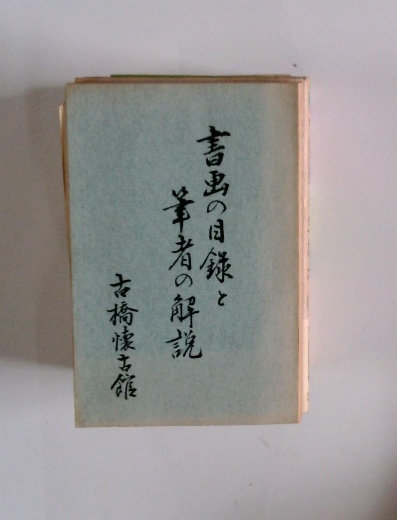 書画の目録と
筆者の解説
古橋懐古館